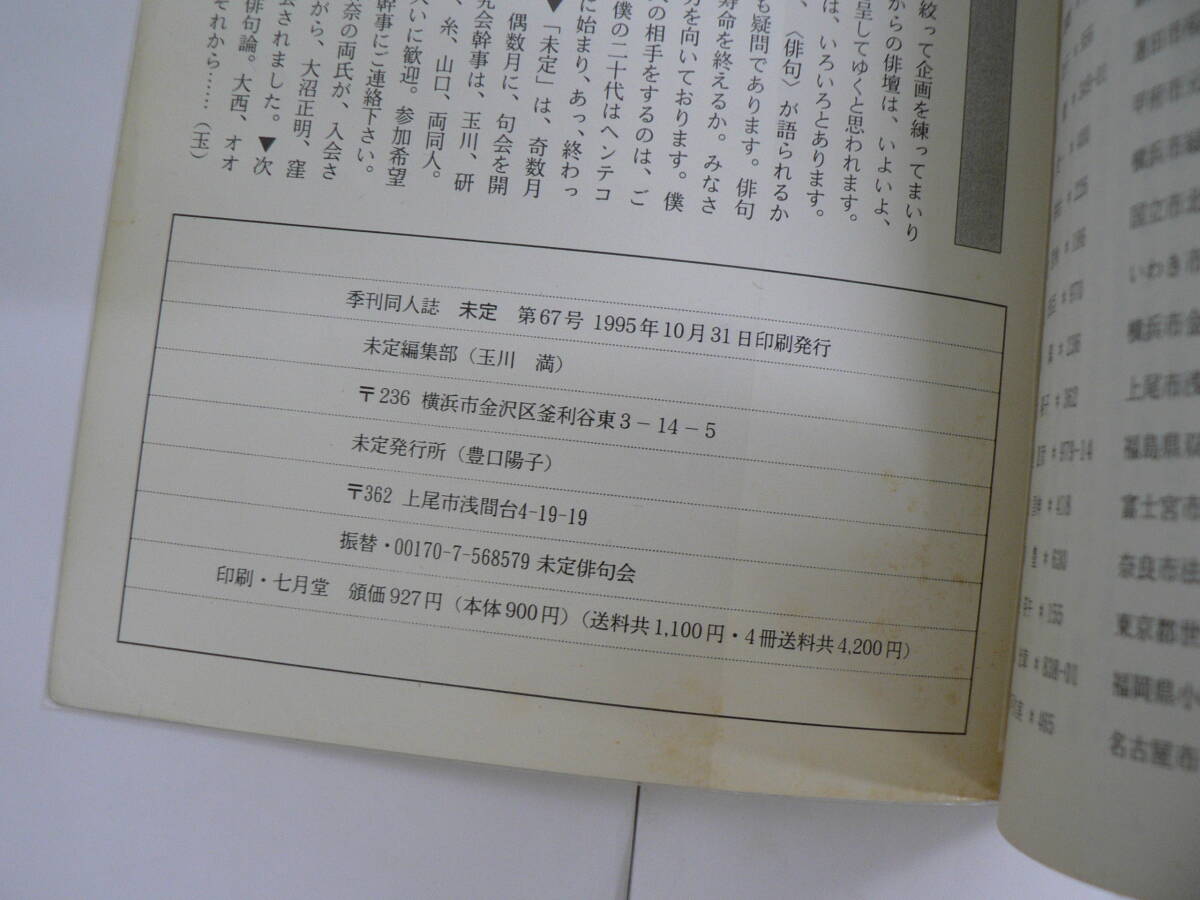 絞って企画を練ってまいり
からの俳壇は、いよいよ、
呈してゆくと思われます。
は、いろいろとあります。
、〈俳句〉が語られるか
も疑問であります。俳句
寿命を終えるか。みなさ
方を向いております。僕
の相手をするのは、ご
僕の二十代はヘンテコ
に始まり、あっ、終わっ
▼「未定」は、奇数月
偶数月に、句会を開
究会幹事は、玉川、研
、糸、山口、両同人。
大いに歓迎。参加希望
幹事にご連絡下さい。
奈の両氏が、入会さ
がら、大沼正明、窪
会されました。▼次
俳句論。大西、オオ
それから……（玉）
季刊同人誌 未定 第67号 1995年10月31日印刷発行
未定編集部（玉川 満）
〒236 横浜市金沢区釜利谷東3－14－5
未定発行所（豊口陽子）
〒362 上尾市浅間台4-19-19
振替・00170-7-568579 未定俳句会
印刷・七月堂 頒価927円（本体900円）（送料共1,100円・4冊送料共4,200円）
甲府市
横浜市
国立市
いわき市
横浜市金
上尾市浅
福島県
富士宮市
奈良市
東京都世
福岡県小
名古屋市